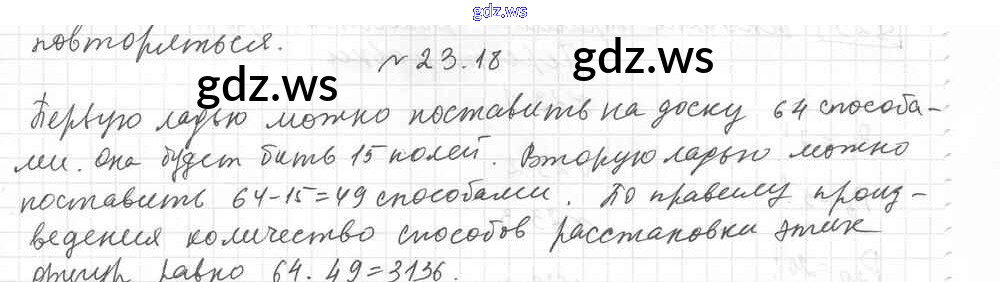 gdz.ws
повторяться.
№ 23.18
gdz.ws gdz.ws
Первую ладью можно поставить на доску 64 способа-
ми. Она будет бить 15 полей. Вторую ладью можно
поставить 64-15=49 способами. По правилу произ-
ведения количество способов расстановки этих
фигур равно 64·49=3136.